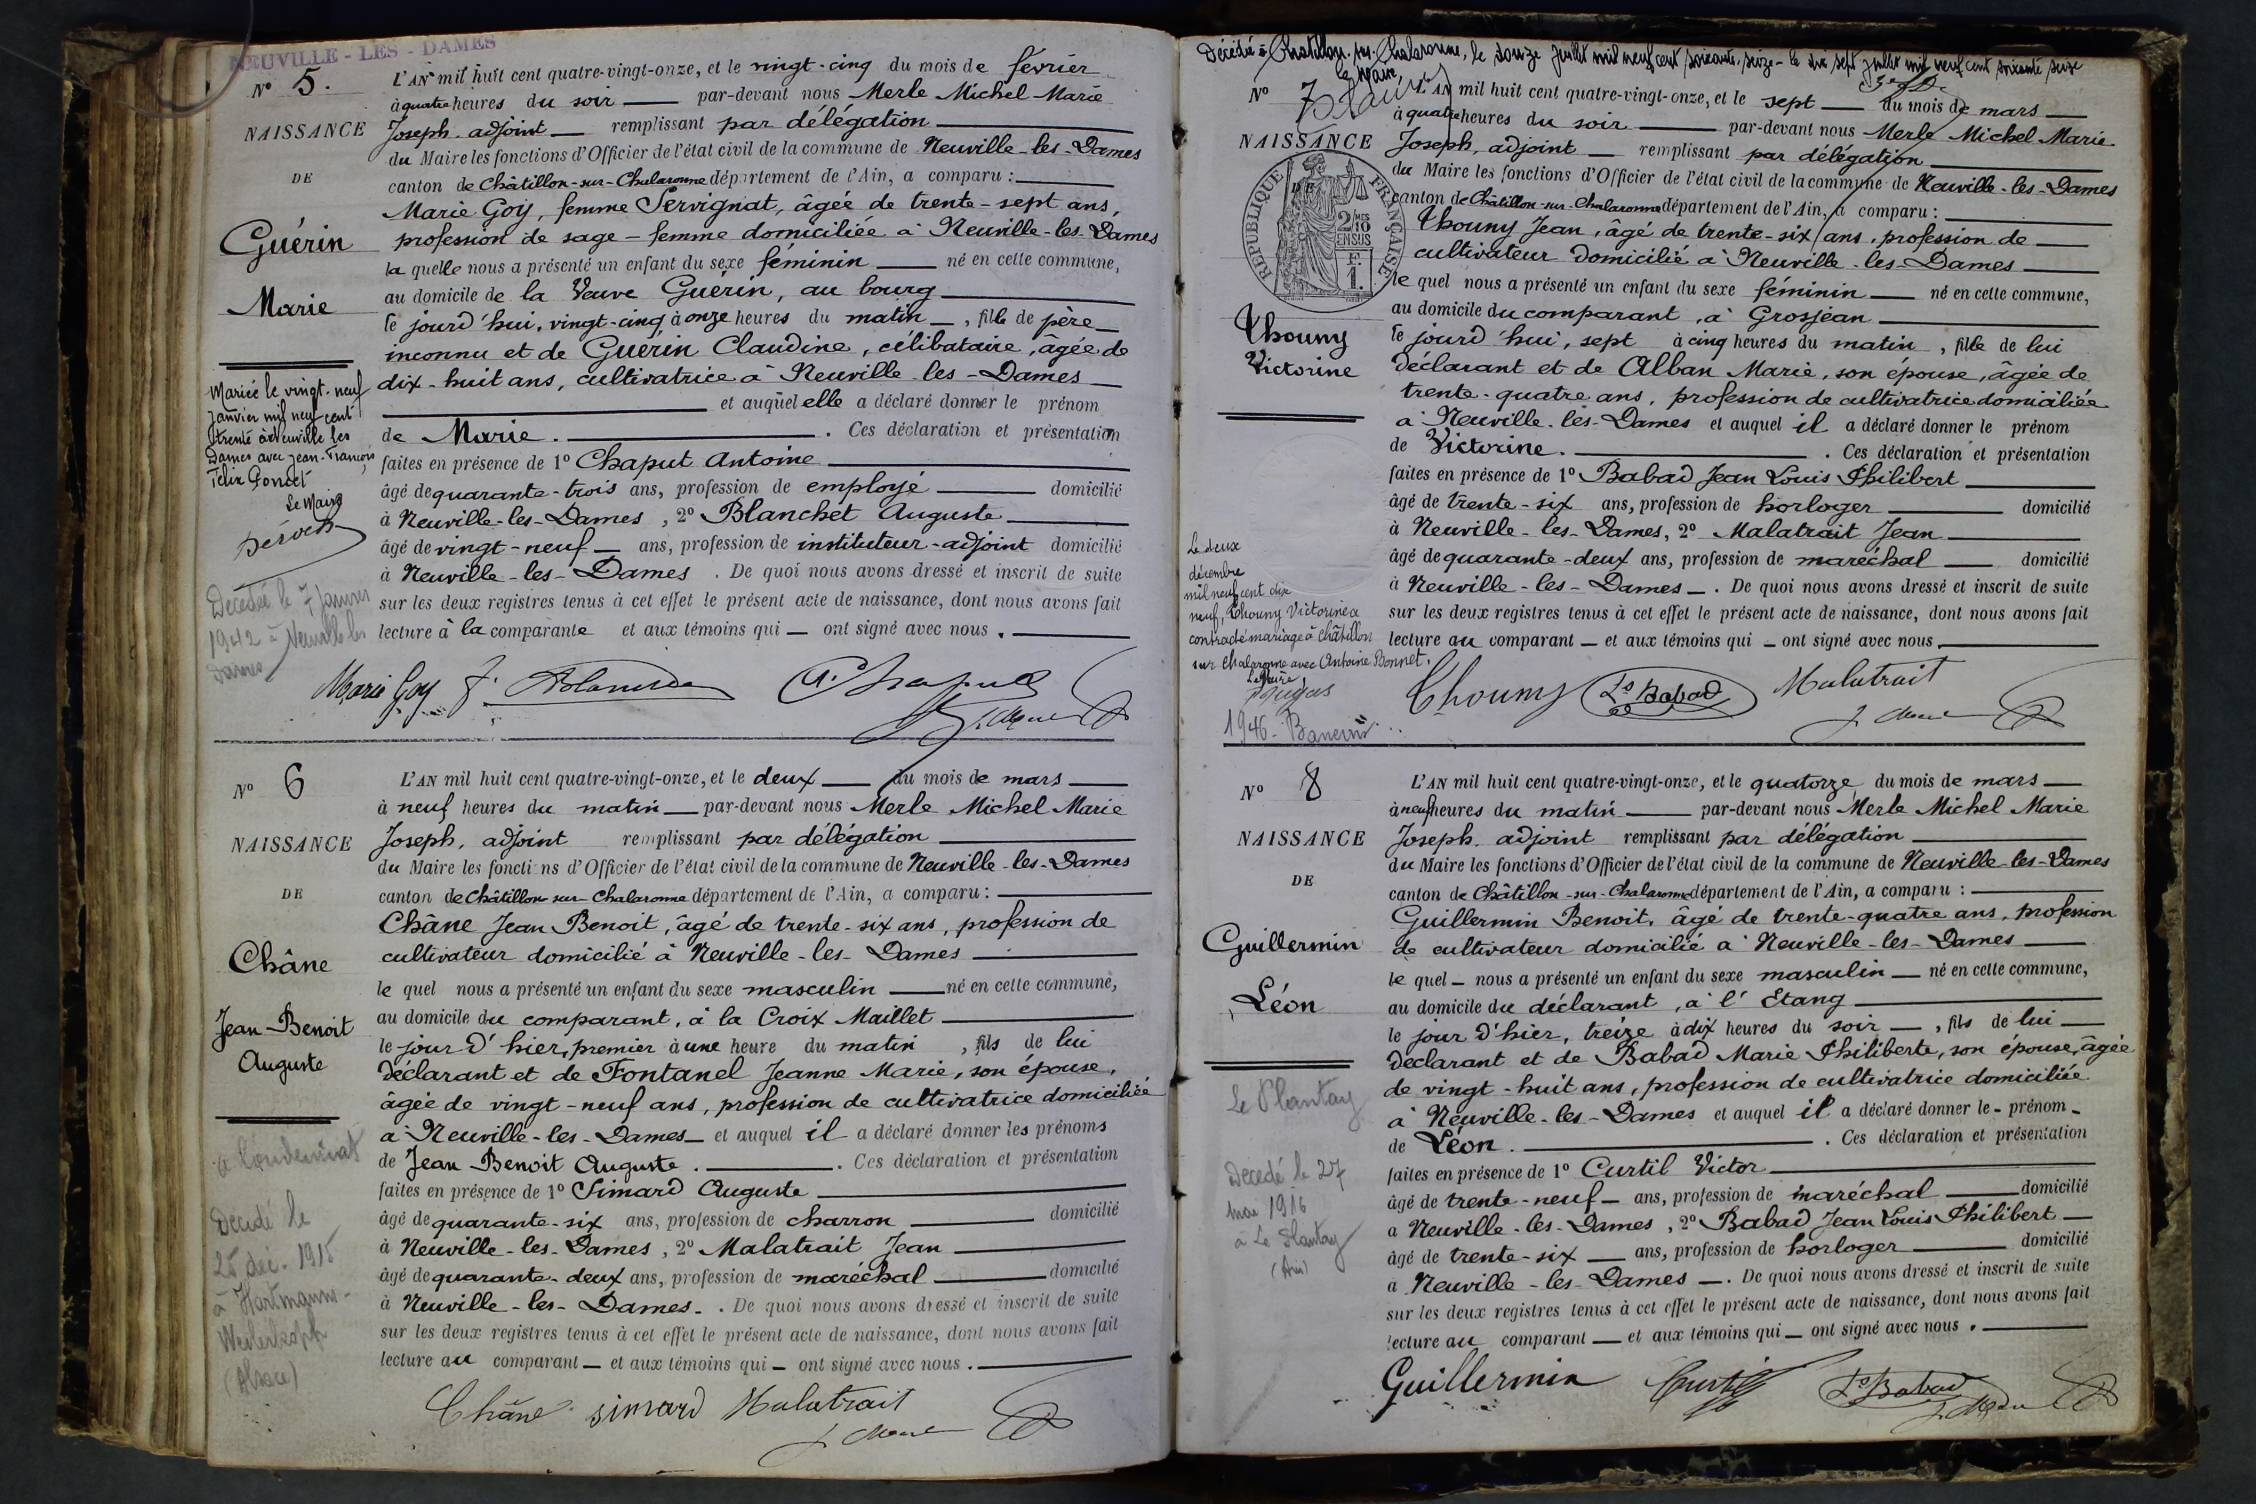 NEUVILLE - LES - DAMES
N° 5.
NAISSANCE
DE
Guérin
Marie
Mariée le vingt-neuf
janvier mil neuf cent
trente à Neuville les
Dames avec Jean-François
Félix Poncet
Le Maire
Décédée le 7 janvier
1942 à Neuville les
Dames
L'AN mil huit cent quatre-vingt-onze, et le vingt-cinq du mois de février
à quatre heures du soir par-devant nous Merle Michel Marie
Joseph, adjoint remplissant par délégation
du Maire les fonctions d'Officier de l'état civil de la commune de Neuville-les-Dames
canton de Châtillon-sur-Chalaronne département de l'Ain, a comparu :
Marie Goy, femme Servignat, âgée de trente-sept ans,
profession de sage-femme domiciliée à Neuville-les-Dames
la quelle nous a présenté un enfant du sexe féminin né en cette commune,
au domicile de la Veuve Guérin, au bourg
le jourd'hui, vingt-cinq à onze heures du matin, fille de père
inconnu et de Guérin Claudine, célibataire, âgée de
dix-huit ans, cultivatrice à Neuville-les-Dames
et auquel elle a déclaré donner le prénom
de Marie. . Ces déclaration et présentation
faites en présence de 1° Chaput Antoine
âgé de quarante-trois ans, profession de employé domicilié
à Neuville-les-Dames, 2° Blanchet Auguste
âgé de vingt-neuf ans, profession de instituteur-adjoint domicilié
à Neuville-les-Dames. De quoi nous avons dressé et inscrit de suite
sur les deux registres tenus à cet effet le présent acte de naissance, dont nous avons fait
lecture à la comparante et aux témoins qui ont signé avec nous.
Marie Goy f. S. Blanchet A. Chaput
J. Merle
N° 6
NAISSANCE
DE
Châne
Jean-Benoit
Auguste
à Condeissiat
Décédé le
25 déc. 1915
à Hartmanns-
Weilerkopf
(Alsace)
L'AN mil huit cent quatre-vingt-onze, et le deux du mois de mars
à neuf heures du matin par-devant nous Merle Michel Marie
Joseph, adjoint remplissant par délégation
du Maire les fonctions d'Officier de l'état civil de la commune de Neuville-les-Dames
canton de Châtillon-sur-Chalaronne département de l'Ain, a comparu :
Châne Jean Benoit, âgé de trente-six ans, profession de
cultivateur domicilié à Neuville-les-Dames
le quel nous a présenté un enfant du sexe masculin né en cette commune,
au domicile du comparant, à la Croix Maillet
le jour d'hier, premier à une heure du matin, fils de lui
déclarant et de Fontanel Jeanne Marie, son épouse,
âgée de vingt-neuf ans, profession de cultivatrice domiciliée
à Neuville-les-Dames et auquel il a déclaré donner les prénoms
de Jean Benoit Auguste. . Ces déclaration et présentation
faites en présence de 1° Simard Auguste
âgé de quarante-six ans, profession de charron domicilié
à Neuville-les-Dames, 2° Malatrait Jean
âgé de quarante-deux ans, profession de maréchal domicilié
à Neuville-les-Dames. . De quoi nous avons dressé et inscrit de suite
sur les deux registres tenus à cet effet le présent acte de naissance, dont nous avons fait
lecture au comparant et aux témoins qui ont signé avec nous.
Châne Simard Malatrait
J. Merle
Décédée à Chatillon-sur-Chalaronne, le douze juillet mil neuf cent soixante-seize - le dix sept juillet mil neuf cent soixante seize
le Maire
N° 7
NAISSANCE
REPUBLIQUE FRANÇAISE
2/10 MES
EN SUS
F.
1.
Thouny
Victorine
Le deux
décembre
mil neuf cent dix
neuf, Thouny Victorine a
contracté mariage à Châtillon
sur Chalaronne avec Antoine Bonnet.
Le Maire
1946 -
L'AN mil huit cent quatre-vingt-onze, et le sept du mois de mars
à quatre heures du soir par-devant nous Merle Michel Marie
Joseph, adjoint remplissant par délégation
du Maire les fonctions d'Officier de l'état civil de la commune de Neuville-les-Dames
canton de Châtillon-sur-Chalaronne département de l'Ain, a comparu :
Thouny Jean, âgé de trente-six ans, profession de
cultivateur domicilié à Neuville-les-Dames
le quel nous a présenté un enfant du sexe féminin né en cette commune,
au domicile du comparant, à Grosjean
le jourd'hui, sept à cinq heures du matin, fille de lui
déclarant et de Alban Marie, son épouse, âgée de
trente-quatre ans, profession de cultivatrice domiciliée
à Neuville-les-Dames et auquel il a déclaré donner le prénom
de Victorine. . Ces déclaration et présentation
faites en présence de 1° Babad Jean Louis Philibert
âgé de trente-six ans, profession de horloger domicilié
à Neuville-les-Dames, 2° Malatrait Jean
âgé de quarante-deux ans, profession de maréchal domicilié
à Neuville-les-Dames. De quoi nous avons dressé et inscrit de suite
sur les deux registres tenus à cet effet le présent acte de naissance, dont nous avons fait
lecture au comparant et aux témoins qui ont signé avec nous
Thouny Ls Babad Malatrait
J. Merle
N° 8
NAISSANCE
DE
Guillermin
Léon
Le Plantay
Décédé le 27
mai 1916
à Le Plantay
(Ain)
L'AN mil huit cent quatre-vingt-onze, et le quatorze du mois de mars
à neuf heures du matin par-devant nous Merle Michel Marie
Joseph, adjoint remplissant par délégation
du Maire les fonctions d'Officier de l'état civil de la commune de Neuville-les-Dames
canton de Châtillon-sur-Chalaronne département de l'Ain, a comparu :
Guillermin Benoit, âgé de trente-quatre ans, profession
de cultivateur domicilié à Neuville-les-Dames
le quel nous a présenté un enfant du sexe masculin né en cette commune,
au domicile du déclarant, à l'Etang
le jour d'hier, treize à dix heures du soir, fils de lui
déclarant et de Babad Marie Philiberte, son épouse, âgée
de vingt-huit ans, profession de cultivatrice domiciliée
à Neuville-les-Dames et auquel il a déclaré donner le prénom
de Léon. . Ces déclaration et présentation
faites en présence de 1° Curtil Victor
âgé de trente-neuf ans, profession de maréchal domicilié
à Neuville-les-Dames, 2° Babad Jean Louis Philibert
âgé de trente-six ans, profession de horloger domicilié
à Neuville-les-Dames. De quoi nous avons dressé et inscrit de suite
sur les deux registres tenus à cet effet le présent acte de naissance, dont nous avons fait
lecture au comparant et aux témoins qui ont signé avec nous.
Guillermin Curtil Ls Babad
J. Merle